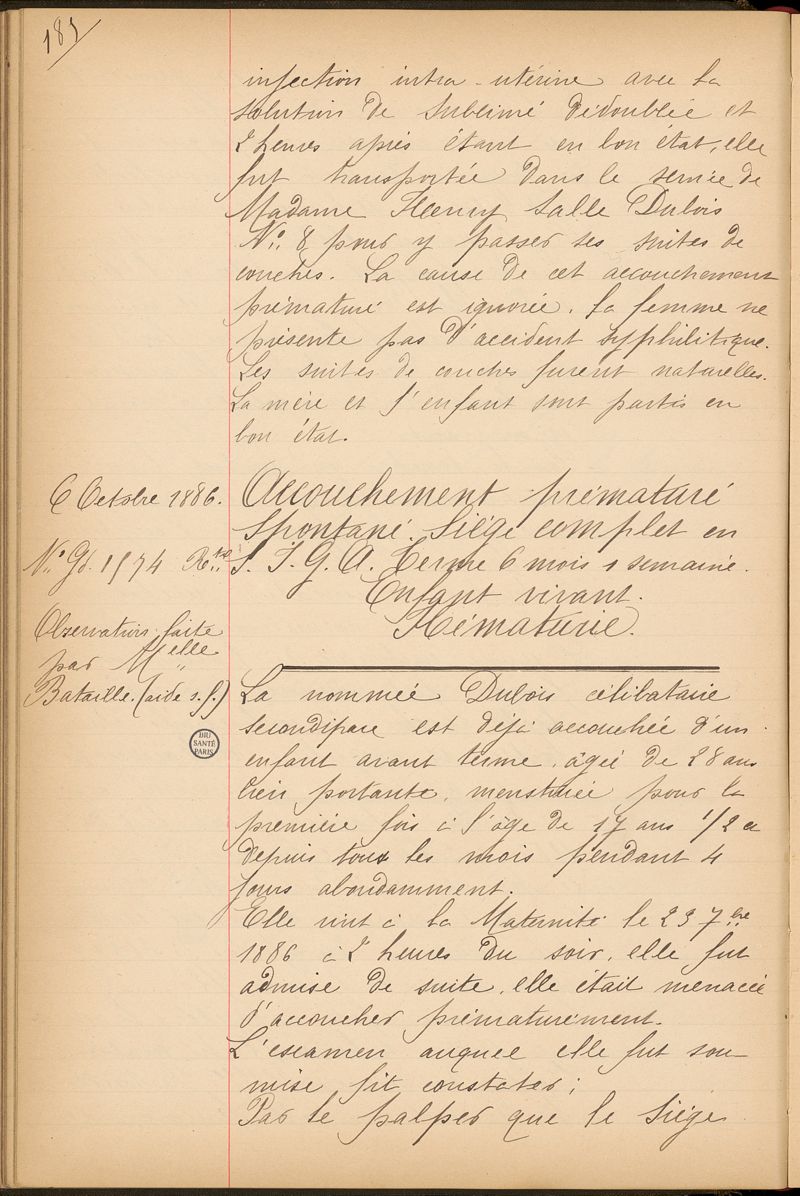 185
infection intra-utérine avec la
solution de sublimé dédoublée et
2 heures après étant en bon état, elle
fut transportée dans le service de
Madame Henry Salle Dubois
No: 8 pour y passer ses suites de
couches. La cause de cet accouchement
prématuré est ignorée, la femme ne
présente pas d'accident syphilitique.
Les suites de couches furent naturelles.
La mère et l'enfant sont partis en
bon état.
6 Octobre 1886.
Accouchement prématuré
Spontané. Siège complet en
No: Gl. 1574
S. I. G. A. Terme 6 mois 1 semaine.
Enfant vivant.
Hématurie.
Observation faite
par Melle
Bataille. (aide s.f.)
BIU
SANTÉ
PARIS
La nommée Dubois célibataire
secondipare est déjà accouchée d'un
enfant avant terme, âgée de 28 ans
bien portante, menstruée pour la
première fois à l'âge de 17 ans 1/2 et
depuis tous les mois pendant 4
jours abondamment.
Elle vint à la Maternité le 23 7bre
1886 à 2 heures du soir, elle fut
admise de suite, elle était menacée
d'accoucher prématurément.
L'examen auquel elle fut sou-
mise fit constater;
Par le palper que le siège